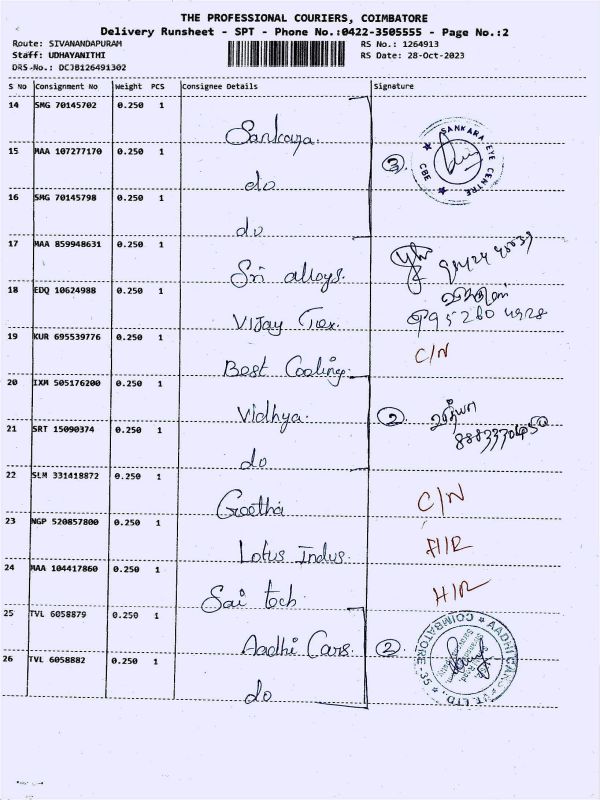 THE PROFESSIONAL COURIERS, COIMBATORE
Delivery Runsheet - SPT - Phone No.:0422-3505555 - Page No.:2
Route: SIVANANDAPURAM RS No.: 1264913
Staff: UDHAYANITHI RS Date: 28-Oct-2023
DRS-No.: DCJB126491302
S No Consignment No Weight PCS Consignee Details Signature
14 SMG 70145702 0.250 1
Sankara.
15 MAA 107277170 0.250 1
do
② SANKARA EYE CENTRE CBE
16 SMG 70145798 0.250 1
do
17 MAA 859948631 0.250 1
Sri alloys.
18 EDQ 10624988 0.250 1
Vijay Tex.
19 KUR 695539776 0.250 1
Best Cooling. C/N
20 IXM 505176200 0.250 1
Vidhya. ②
21 SRT 15090374 0.250 1
do
22 SLM 331418872 0.250 1
Geetha C/N
23 NGP 520857800 0.250 1
Lotus Indus.
24 MAA 104417860 0.250 1
Sai tech H/R
25 TVL 6058879 0.250 1
Aadhi Cars. ② AADHI CARS PVT. LTD COIMBATORE-35
26 TVL 6058882 0.250 1
do